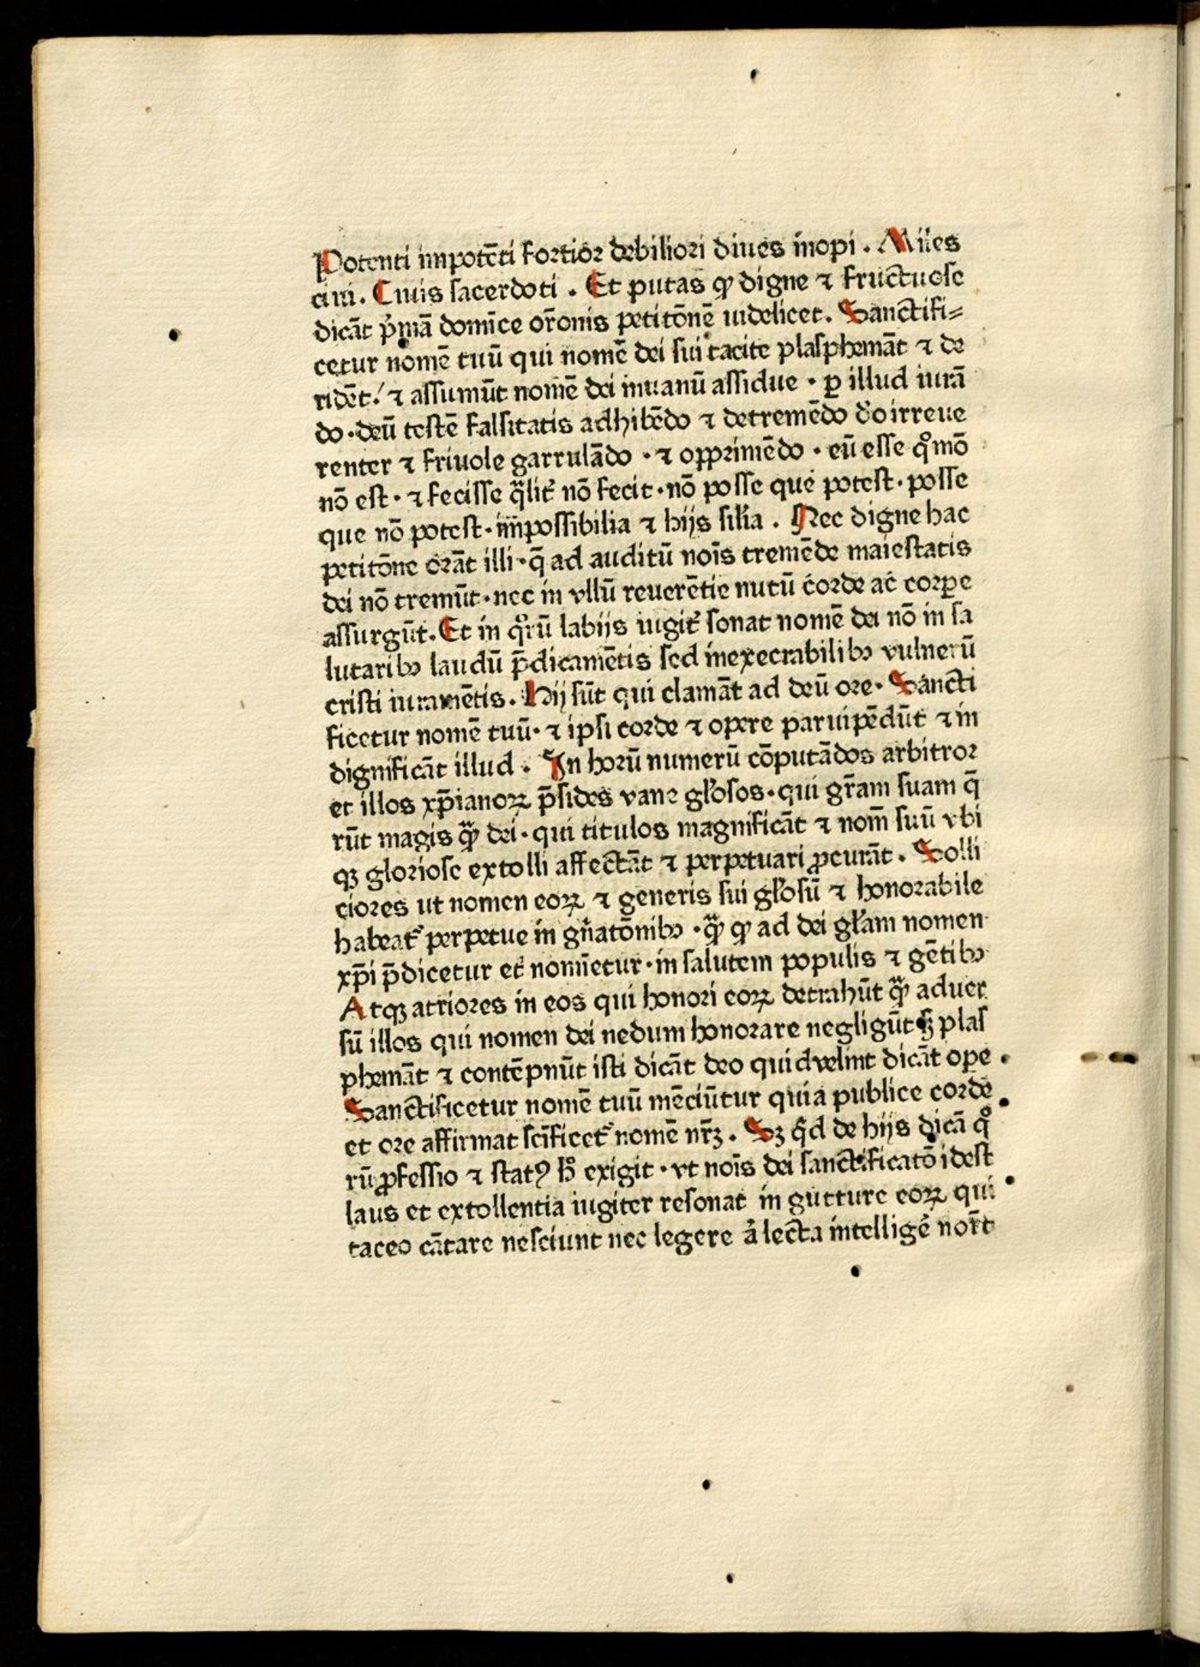 Potenti impotēti fortior debiliori diues inopi . Miles
ciui . Ciuis sacerdoti . Et putas ꝙ digne ⁊ fructuose
dicāt p̄mā domīce or̄onis petitōnē uidelicet . Sanctifi⸗
cetur nomē tuū qui nomē dei sui tacite plasphemāt ⁊ de
ridēt / ⁊ assumūt nomē dei inuanū assidue · ꝑ illud iurā
do · deū testē falsitatis adhibēdo ⁊ detremēdo d̓o irreue
renter ⁊ friuole garrulādo · ⁊ opprimēdo · eū esse qͦmō
nō est · ⁊ fecisse q̄lit᷑ nō fecit · nō posse que potest · posse
que nō potest · īmpossibilia ⁊ hijs silia . Nec digne hac
petitōne orāt illi · q̄ ad auditū nōis tremēde maiestatis
dei nō tremūt · nec in vllū reuerētie nutū corde ac corꝑe
assurgūt . Et in qͦrū labijs iugit᷑ sonat nomē dei nō in sa
lutaribꝰ laudū p̄dicamētis sed inexecrabilibꝰ vulnerū
cristi iuramētis . Hij sūt qui clamāt ad deū ore · Sancti
ficetur nomē tuū · ⁊ ipsi corde ⁊ opere paruipēdūt ⁊ in
dignificāt illud . In horū numerū cōputādos arbitror
et illos xp̄ianoꝝ p̄sides vane gl̓osos · qui gr̄am suam q̄
rūt magis qᷓꝫ dei · qui titulos magnificāt ⁊ nom̄ suū vbi
qꝫ gloriose extolli affectāt ⁊ perpetuari ꝓcurāt . Solli
ciores ut nomen eoꝝ ⁊ generis sui gl̓osū ⁊ honorabile
habeat᷑ perpetue in gn̄atōnibꝰ · qᷓꝫ ꝙ ad dei gl̓am nomen
xp̄i p̄dicetur et nomīetur · in salutem populis ⁊ gētibꝰ
Atqꝫ atriores in eos qui honori eoꝝ detrahūt qᷓꝫ aduer
sū illos qui nomen dei nedum honorare negligūt sꝫ plas
phemāt ⁊ contēpnūt isti dicāt deo quid velint dicāt oꝑe .
Sanctificetur nomē tuū mēciūtur quia publice corde
et ore affirmat scīficet᷑ nomē nr̄ꝫ . Sꝫ q̇d de hijs dicā qͦ
rū ꝓfessio ⁊ statꝰ hͦ exigit · vt nōis dei sanctificatō idest
laus et extollentia iugiter resonat in gutture eoꝝ qui
taceo cātare nesciunt nec legere a̓ lecta intelligē nōr̄t